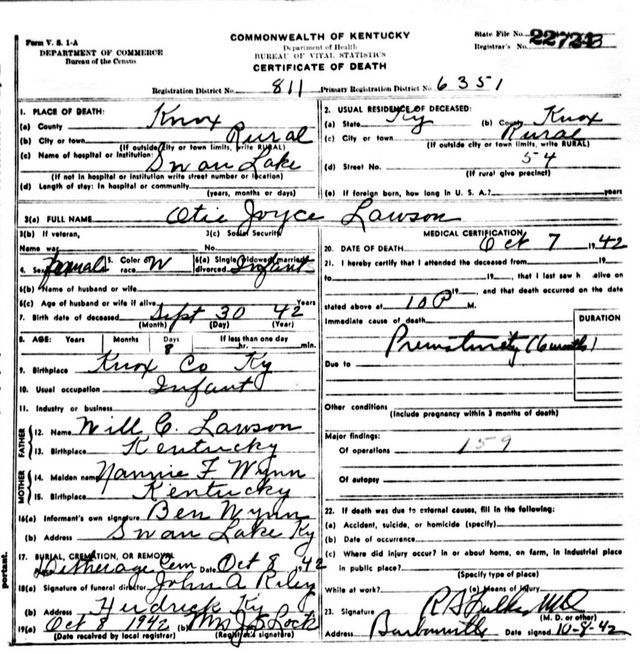 Form V. S. 1-A
DEPARTMENT OF COMMERCE
Bureau of the Census
COMMONWEALTH OF KENTUCKY
Department of Health
BUREAU OF VITAL STATISTICS
CERTIFICATE OF DEATH
State File No.
Registrar's No.
Registration District No. 811 Primary Registration District No. 6351
1. PLACE OF DEATH:
(a) County Knox
(b) City or town Rural
(If outside city or town limits, write RURAL)
(c) Name of hospital or institution: Swan Lake
(If not in hospital or institution write street number or location)
(d) Length of stay: In hospital or community
(years, months or days)
2. USUAL RESIDENCE OF DECEASED:
(a) State Ky (b) County Knox
(c) City or town Rural
(If outside city or town limits, write RURAL)
(d) Street No. 54
(If rural give precinct)
(e) If foreign born, how long in U. S. A.? years
3(a) FULL NAME Otie Joyce Lawson
3(b) If veteran,
Name war
3(c) Social Security
No.
4. Sex Female 5. Color or race W 6(a) Single, widowed, married, divorced Infant
6(b) Name of husband or wife
6(c) Age of husband or wife if alive Years
7. Birth date of deceased Sept 30 42
(Month) (Day) (Year)
8. AGE: Years Months Days If less than one day
8 hr. min.
9. Birthplace Knox Co Ky
10. Usual occupation Infant
11. Industry or business
FATHER
12. Name Will C. Lawson
13. Birthplace Kentucky
MOTHER
14. Maiden name Nannie F Wynn
15. Birthplace Kentucky
16(a) Informant's own signature Ben Wynn
(b) Address Swan Lake Ky
17. BURIAL, CREMATION, OR REMOVAL
Cem Date Oct 8 1942
18(a) Signature of funeral director John A Riley
(b) Address Ky
19(a) Oct 8 1942 (b) Mrs J D Lock
(Date received by local registrar) (Registrar's signature)
MEDICAL CERTIFICATION
20. DATE OF DEATH Oct 7 1942
21. I hereby certify that I attended the deceased from 19
to 19, that I last saw h alive on
19, and that death occurred on the date
stated above at 10 P M.
Immediate cause of death
DURATION
Prematurity (6 months)
Due to
Other conditions
(Include pregnancy within 3 months of death)
Major findings:
Of operations 159
Of autopsy
22. If death was due to external causes, fill in the following:
(a) Accident, suicide, or homicide (specify)
(b) Date of occurrence
(c) Where did injury occur? in or about home, on farm, in industrial place
in public place?
(Specify type of place)
While at work? (e) Means of injury
23. Signature MD
(M. D. or other)
Address Barbourville Date signed 10-8-42
portant.